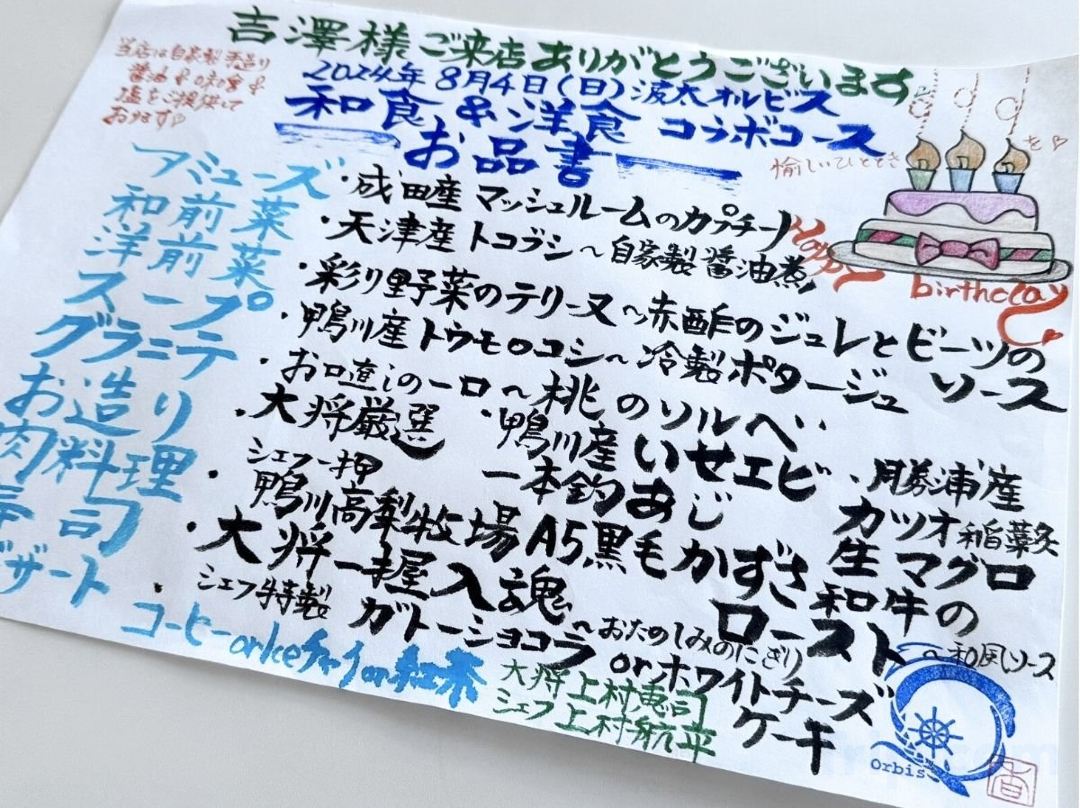 吉澤様ご来店ありがとうございます
当店は自家製手造り
醤油&味噌&
塩をご提供して
おります♡
2024年8月4日(日)波太オルビス
和食&洋食 コラボコース
お品書
愉しいひとときを♡
Happy
birthday
アミューズ ・成田産 マッシュルームのカプチーノ
和前菜 ・天津産 トコブシ〜自家製醤油煮
洋前菜 ・彩り野菜のテリーヌ〜赤酢のジュレとビーツの
ソース
スープ ・鴨川産トウモロコシ〜冷製ポタージュ
グラニテ ・お口直しの一口〜桃のソルベ
お造り ・大将厳選 ・鴨川産いせエビ ・勝浦産
一本釣あじ カツオ稲藁炙
生マグロ
肉料理 ・シェフ一押
鴨川高梨牧場A5黒毛かずさ和牛の
ロースト〜和風ソース
寿司 ・大将一握入魂〜おたのしみのにぎり
デザート ・シェフ特製 ガトーショコラorホワイトチーズ
ケーキ
コーヒーorIceチャイor紅茶
大将上村恵司
シェフ上村航平
Orbis